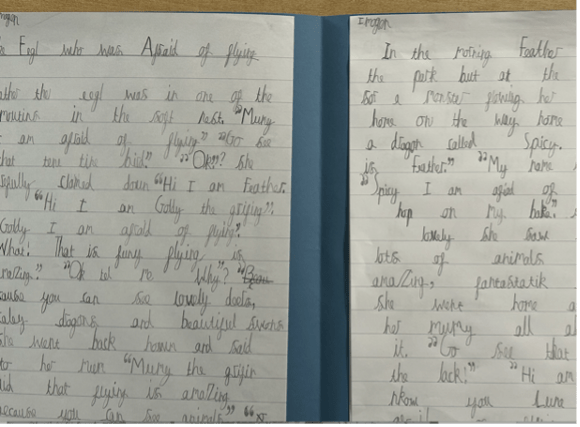 Imogen
Eegl who was Afraid of flying
ather the eegl was in one of the
moutins in the soft nest. "Mumy
I am afraid of flying." "Go see
that tree the bid." "Ok"? She
clamed down "Hi I am Feather.
"Hi I am Goldy the grifin".
Goldy I am afraid of flying".
What! That is funy flying is
amaZing." "Ok tel me Why"?
cause you can see lovely
dragons and beautiful
she went back home and said
to her mum "Mumy the grifin
did that flying is amaZing
because you can see animals"
Imogen
In the morning Feather
the park but at the
a monster her
home on the way home
a dragon called Spicy.
is Feather." "My name
"Spicy I am afraid of
hop on my bake."
lovely She saw
lots of animals
amaZing, fantastatik
She went home a
her mumy all a
it. "Go see that
the lack." "Hi am
nkow you Luna